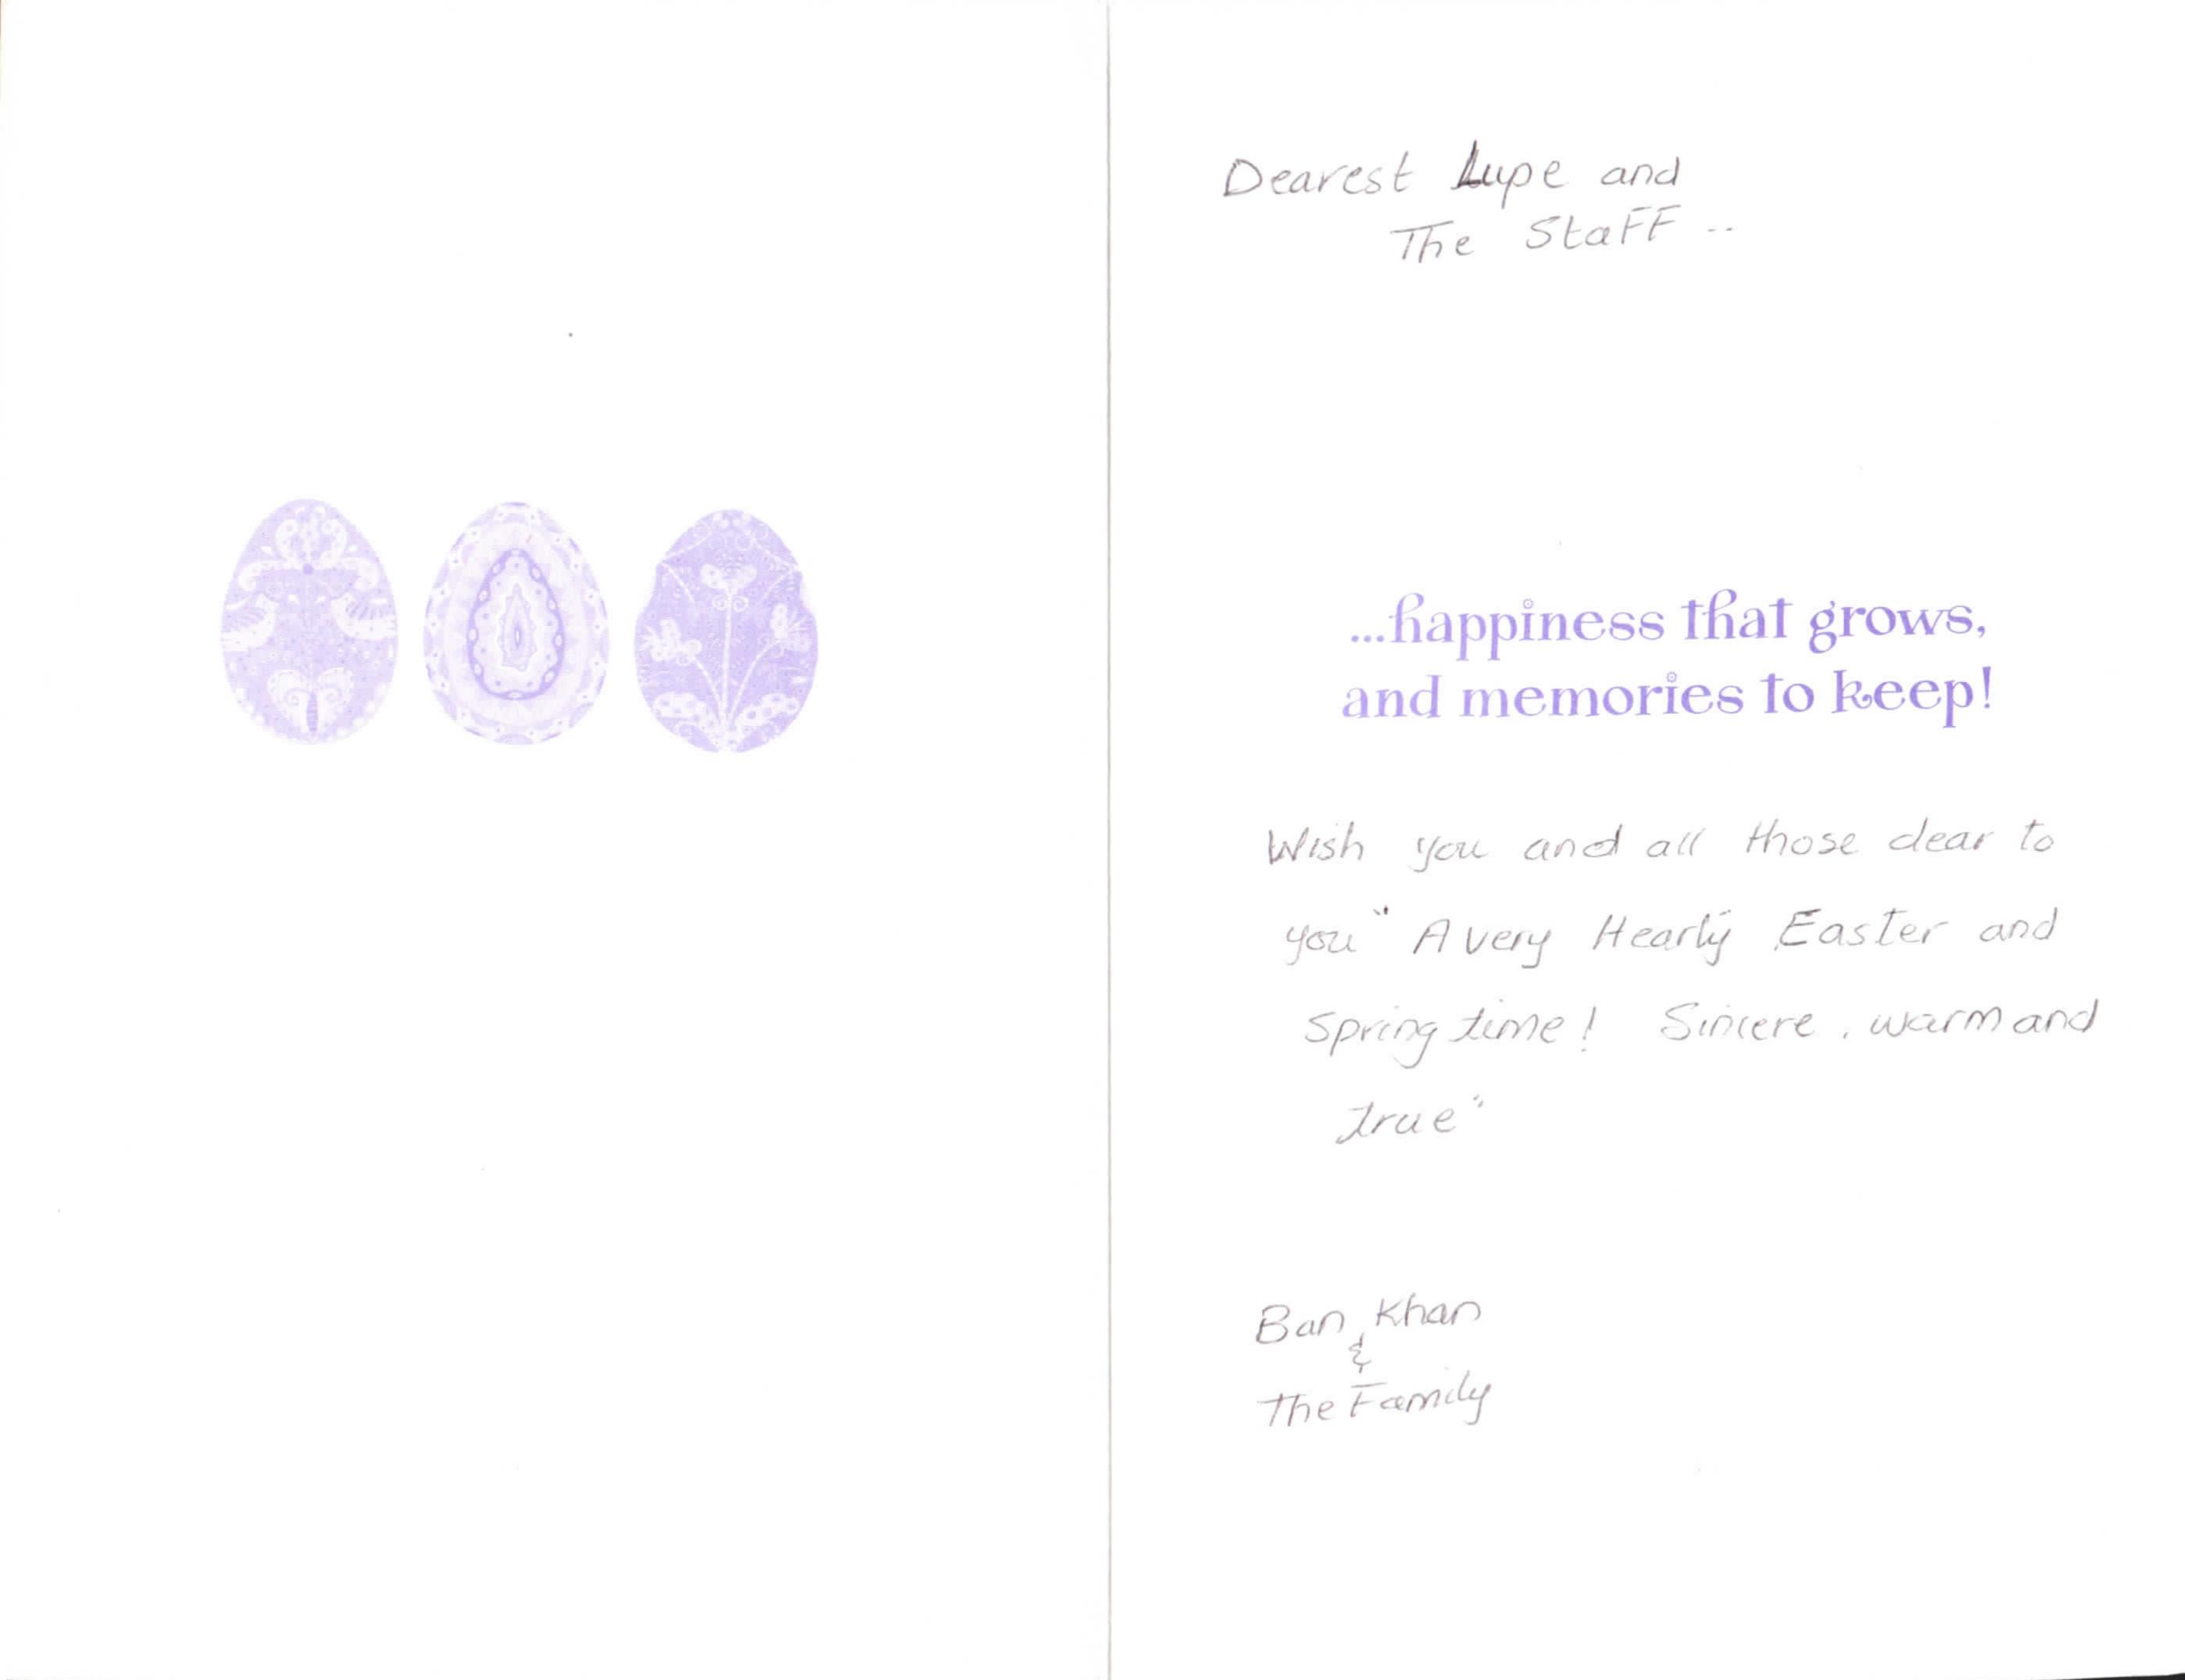 Dearest Lupe and
The Staff ..
...happiness that grows,
and memories to keep!
Wish you and all those dear to
you " A very Hearty Easter and
Spring time! Sincere, warm and
true"
Ban Khan
&
The Family